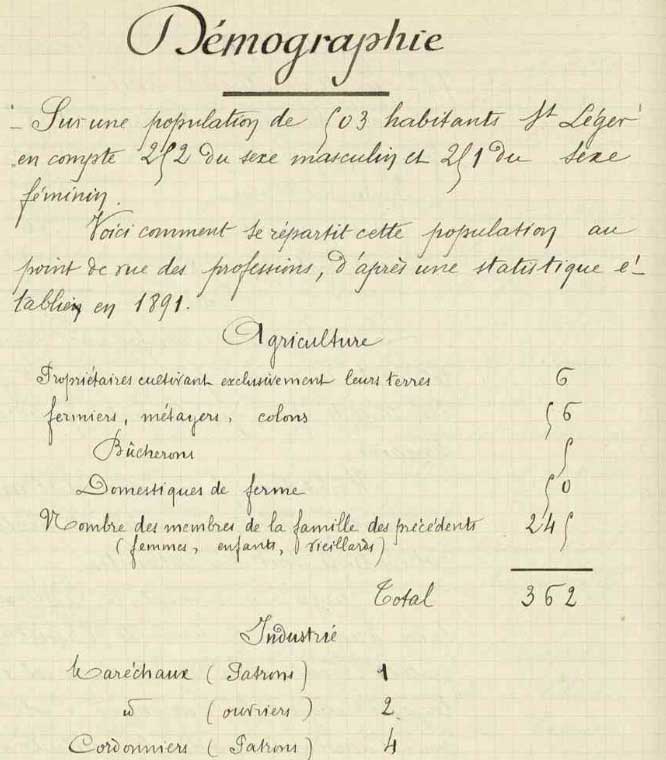 Démographie
- Sur une population de 503 habitants St Léger
en compte 252 du sexe masculin et 251 du sexe
féminin.
Voici comment se répartit cette population au
point de vue des professions, d'après une statistique é-
tablie en 1891.
Agriculture
Propriétaires cultivant exclusivement leurs terres 6
fermiers, métayers, colons 56
Bûcherons 5
Domestiques de ferme 50
Nombre des membres de la famille des précédents 245
(femmes, enfants, vieillards)
Total 362
Industrie
Maréchaux (Patrons) 1
id (ouvriers) 2
Cordonniers (Patrons) 4